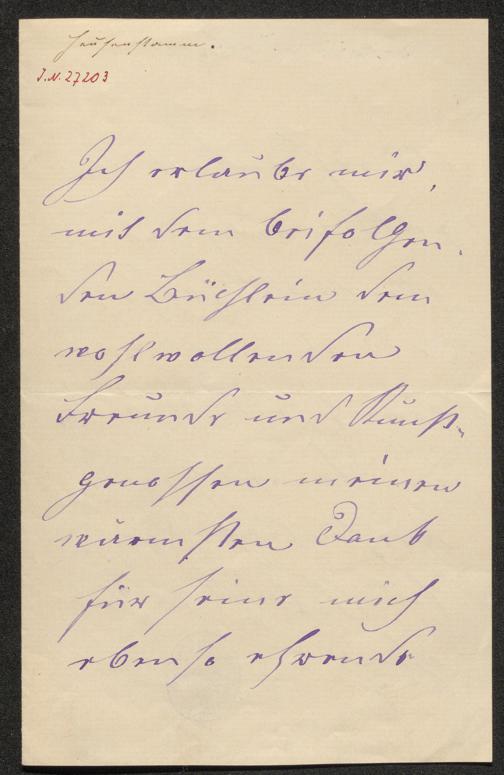 Heusenstamm.
I.N. 27203
Ich erlaube mir,
mit dem beifolgen-
den Büchlein dem
wohlwollenden
Freunde und Kunst-
genossen meinen
wärmsten Dank
für seine mich
ebenso ehrende